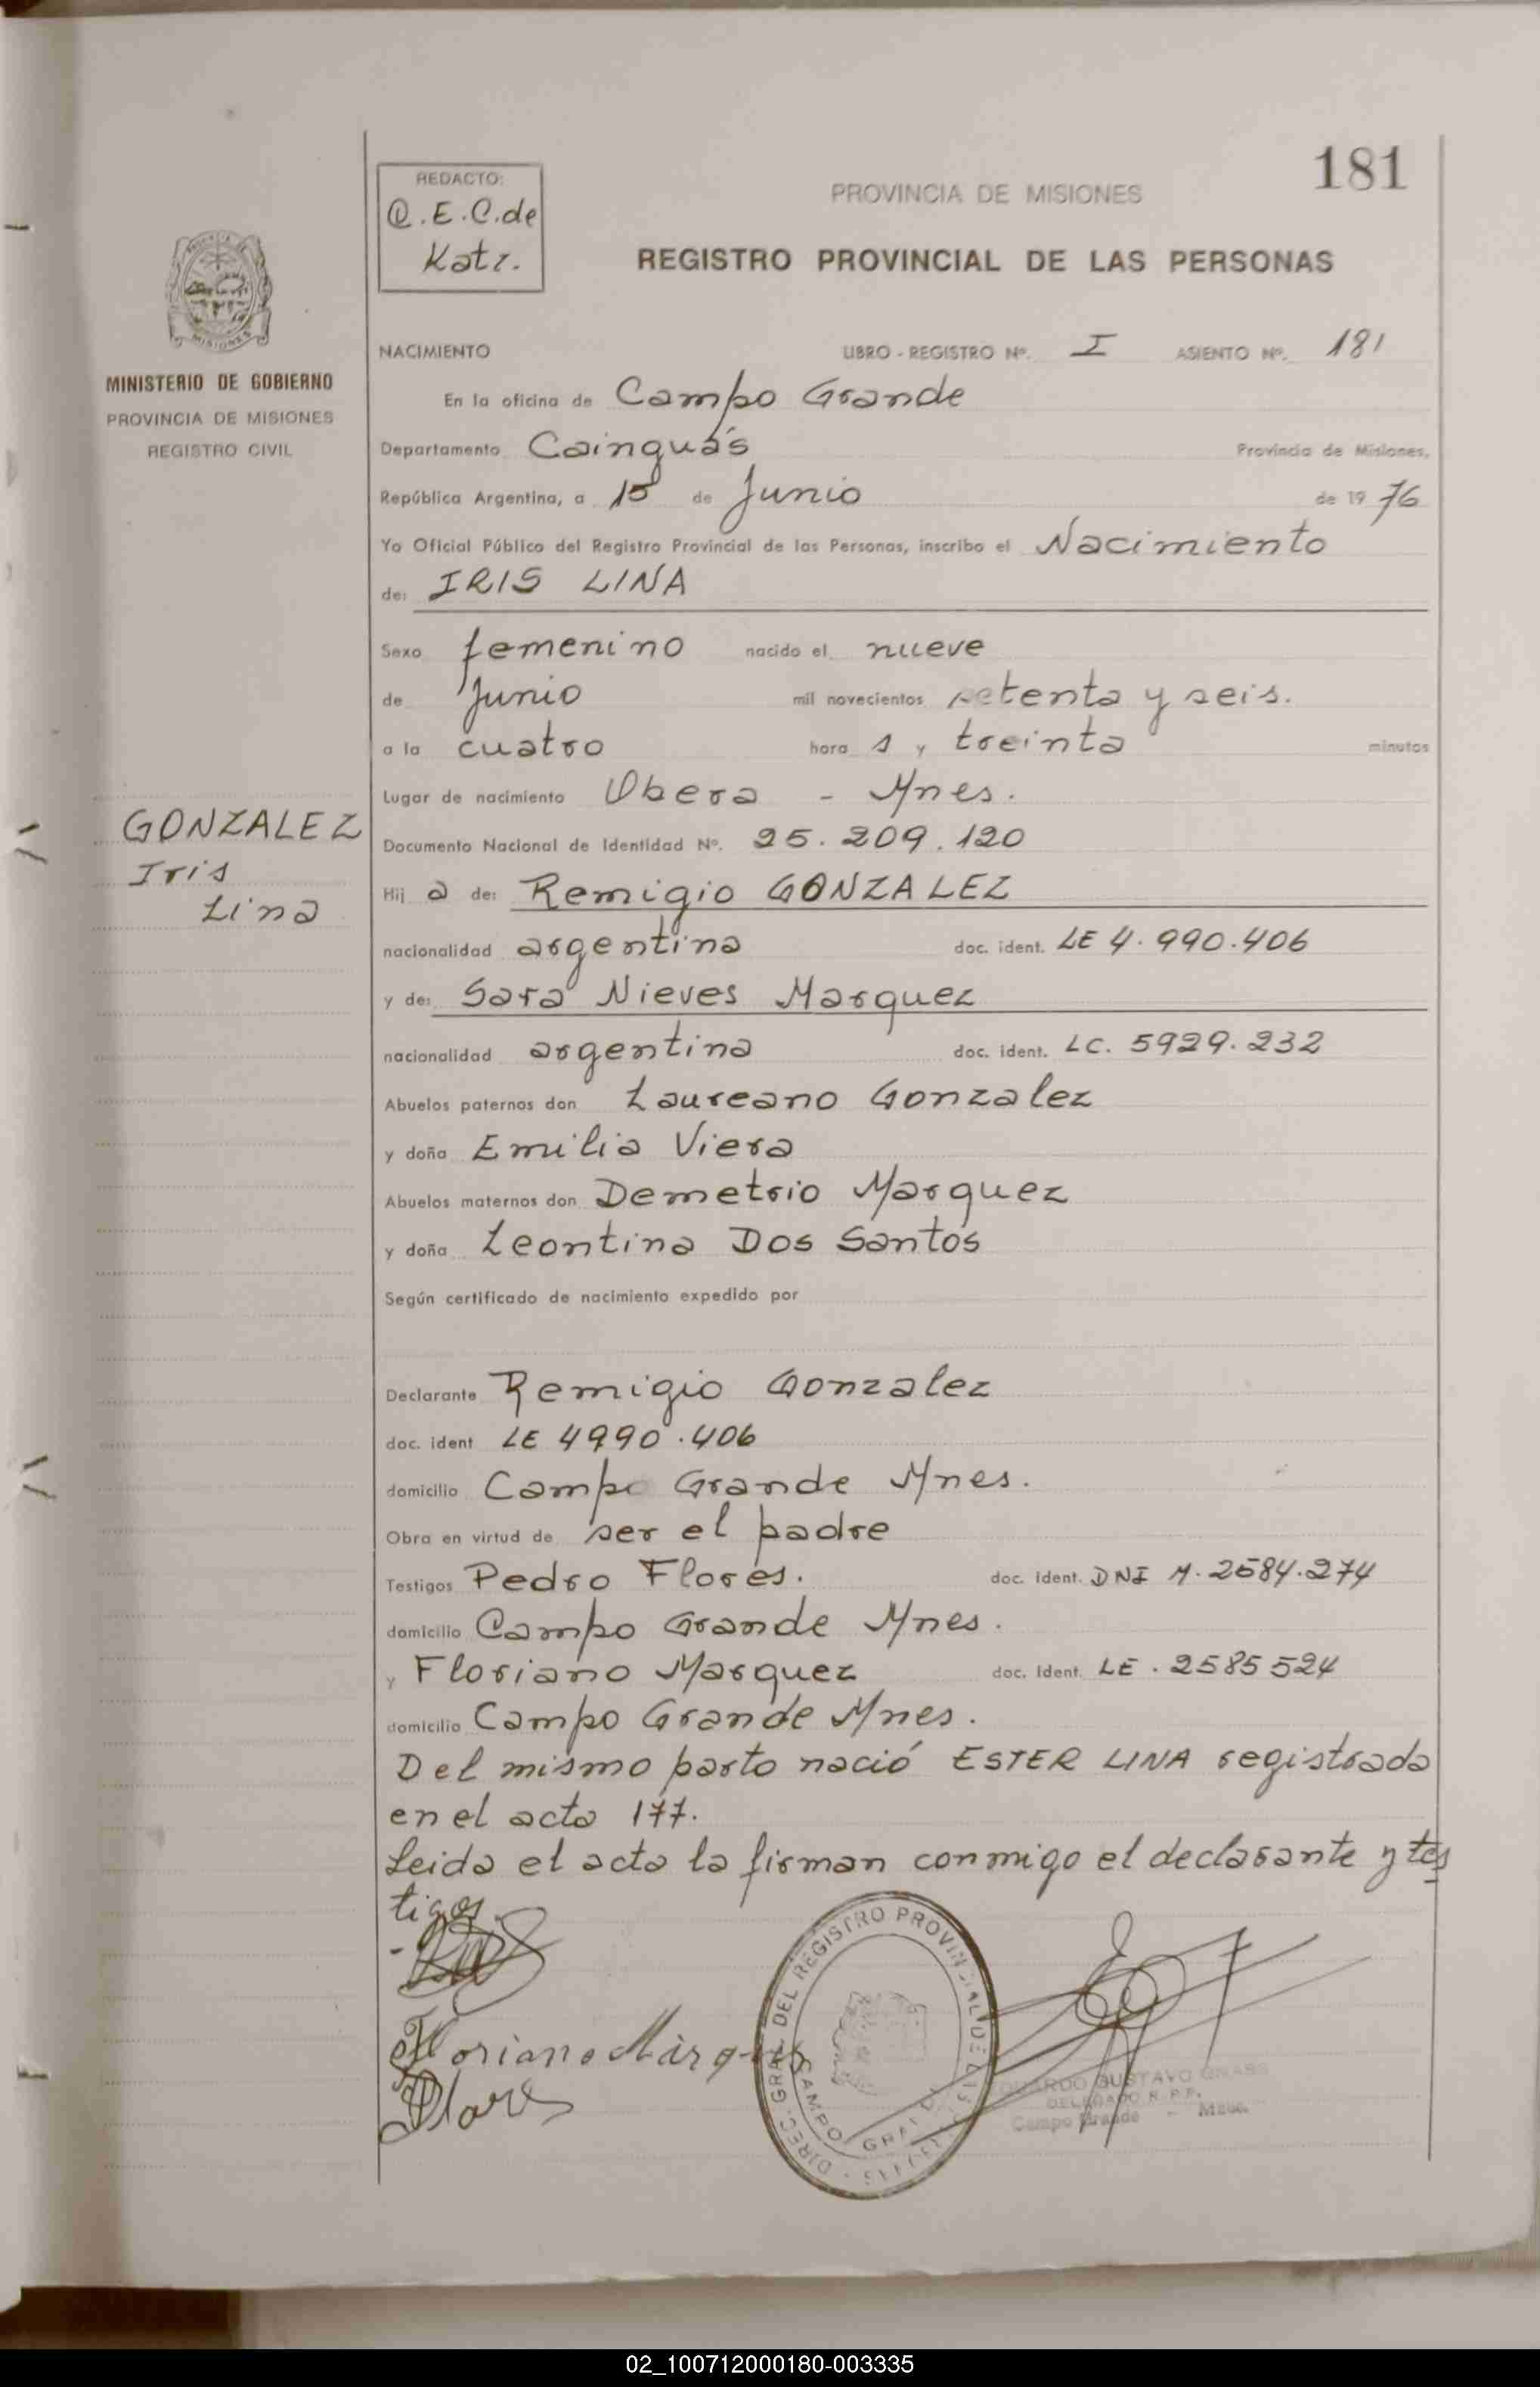 181
REDACTO:
Q.E.C.de
Katz.
PROVINCIA DE MISIONES
REGISTRO PROVINCIAL DE LAS PERSONAS
MISIONES
MINISTERIO DE GOBIERNO
PROVINCIA DE MISIONES
REGISTRO CIVIL
NACIMIENTO LIBRO - REGISTRO Nº. I ASIENTO Nº. 181
En la oficina de Campo Grande
Departamento Cainguás Provincia de Misiones,
República Argentina, a 15 de Junio de 19 76
Yo Oficial Público del Registro Provincial de las Personas, inscribo el Nacimiento
de: IRIS LINA
Sexo femenino nacido el nueve
de Junio mil novecientos setenta y seis.
a la cuatro hora s y treinta minutos
Lugar de nacimiento Obera - Mnes.
GONZALEZ
Iris
Lina
Documento Nacional de Identidad Nº. 25.209.120
Hij a de: Remigio GONZALEZ
nacionalidad argentina doc. ident. LE 4.990.406
y de: Sara Nieves Marquez
nacionalidad argentina doc. ident. LC. 5929.232
Abuelos paternos don Laureano Gonzalez
y doña Emilia Viera
Abuelos maternos don Demetrio Marquez
y doña Leontina Dos Santos
Según certificado de nacimiento expedido por
Declarante Remigio Gonzalez
doc. ident LE 4990.406
domicilio Campo Grande Mnes.
Obra en virtud de ser el padre
Testigos Pedro Flores. doc. ident. DNI M. 2584.274
domicilio Campo Grande Mnes.
y Floriano Marquez doc. ident. LE. 2585524
domicilio Campo Grande Mnes.
Del mismo parto nació ESTER LINA registrada
en el acta 177.
Leida el acta la firman conmigo el declarante y tes
tigos.
Floriano Márquez
Flores
DIREC. GRAL. DEL REGISTRO PROVINCIAL DE LAS PERSONAS
CAMPO GRANDE
EDUARDO GUSTAVO
DELEGADO R.P.P.
Campo Grande - Mnes.
02_100712000180-003335